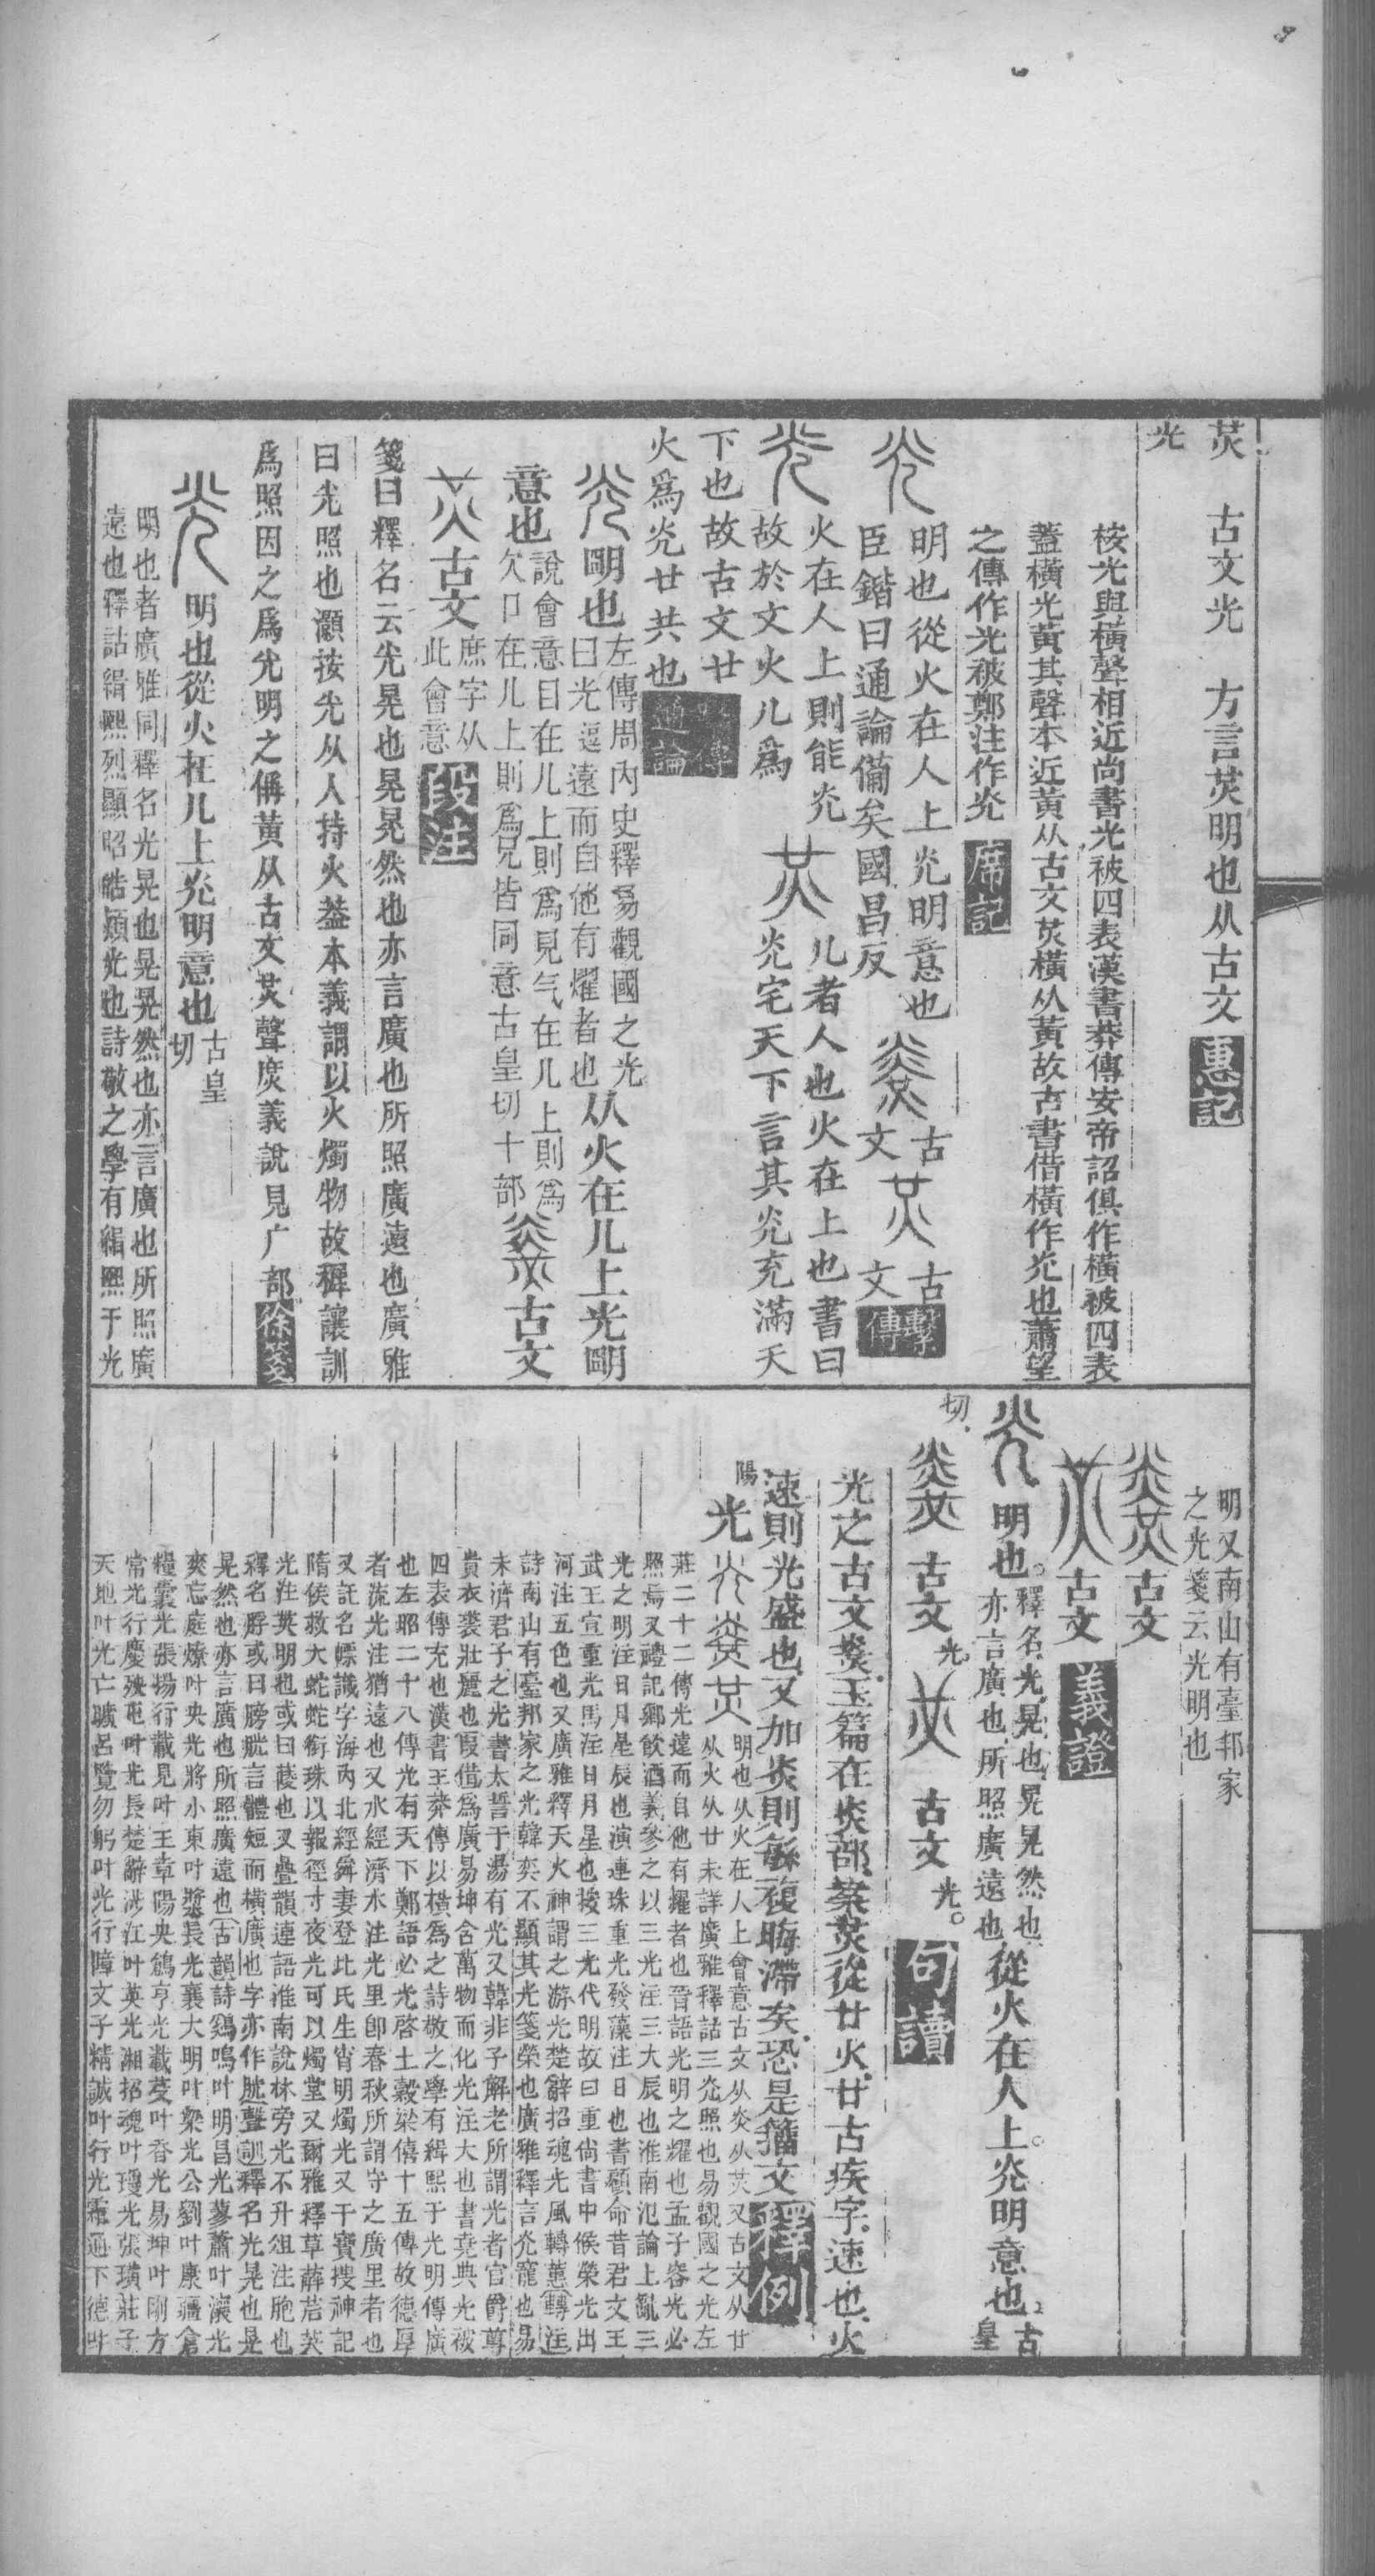 炗　古文光　方言炗明也从古文　惠記
光
桉光與橫聲相近尚書光被四表漢書莽傳安帝詔俱作橫被四表
蓋橫光黃其聲本近黃从古文炗橫从黃故古書借橫作炗也蕭望
之傳作光被鄭注作炗　席記
明也從火在人上炗明意也　古文　古文　繫傳
臣鍇曰通論備矣國昌反
火在人上則能炗　儿者人也火在上也書曰
故於文火儿爲　炗宅天下言其炗充滿天
下也故古文廿
火爲炗廿共也　通論
朙也　左傳周內史釋易觀國之光
曰光遠而自他有燿者也　从火在儿上光朙
意也　說會意目在儿上則爲見气在儿上則爲
欠口在儿上則爲兄皆同意古皇切十部　古文
古文　庶字从
此會意　段注
箋曰釋名云光晃也晃晃然也亦言廣也所照廣遠也廣雅
曰光照也灝按光从人持火葢本義謂以火燭物故穉讓訓
爲照因之爲光明之偁黃从古文炗聲庶義說見广部　徐箋
明也從火在儿上炗明意也　古皇
切
明也者廣雅同釋名光晃也晃晃然也亦言廣也所照廣
遠也釋詁緝熙烈顯昭皓熲光也詩敬之學有緝熙于光
明又南山有臺邦家
之光箋云光明也
古文
古文　義證
明也　釋名光晃也晃晃然也
亦言廣也所照廣遠也　從火在人上炗明意也　古皇
切　古文光　古文光　句讀
光之古文㷠玉篇在炎部案炗從廿火廿古疾字速也火
速則光盛也又加炎則緐複晦滯矣恐是籒文　釋例
陽
光　明也从火在人上會意古文从炎从炗又古文从廿
从火从廿未詳廣雅釋詁三炗照也易觀國之光左
莊二十二傳光遠而自他有燿者也晉語光明之燿也孟子容光必
照焉又禮記鄉飲酒義參之以三光注三大辰也淮南氾論上亂三
光之明注日月星辰也演連珠重光發藻注日也書顧命昔君文王
武王宣重光馬注日月星也按三光代明故曰重尙書中候榮光出
河注五色也又廣雅釋天火神謂之游光楚辭招魂光風轉蕙 轉注
詩南山有臺邦家之光韓奕不顯其光箋榮也廣雅釋言炗寵也易
未濟君子之光書太誓于湯有光又韓非子解老所謂光者官爵尊
貴衣裘壯麗也 叚借爲廣易坤含萬物而化光注大也書堯典光被
四表傳充也漢書王莽傳以橫爲之詩敬之學有緝熙于光明傳廣
也左昭二十八傳光有天下鄭語必光啓土穀梁僖十五傳故德厚
者流光注猶遠也又水經濟水注光里卽春秋所謂守之廣里者也
又託名幖識字海內北經舜妻登比氏生宵明燭光又干寶搜神記
隋侯救大蛇蛇銜珠以報徑寸夜光可以燭堂又爾雅釋草薢茩芵
光注芵明也或曰蔆也又疊韻連語淮南說林旁光不升俎注胞也
釋名脬或曰膀胱言體短而橫廣也字亦作胱 聲訓 釋名光晃也晃
晃然也亦言廣也所照廣遠也 古韻 詩雞鳴叶明昌光蓼蕭叶瀼光
爽忘庭燎叶央光將小東叶漿長光襄大明叶梁光公劉叶康疆倉
糧囊光張揚行載見叶王章陽央鶬亨光載芟叶香光易坤叶剛方
常光行慶殃屯叶光長楚辭涉江叶英光湘招魂叶瓊光張璜莊子
天地叶光亡曠呂覽勿躬叶光行障文子精誠叶行光霜通下德叶